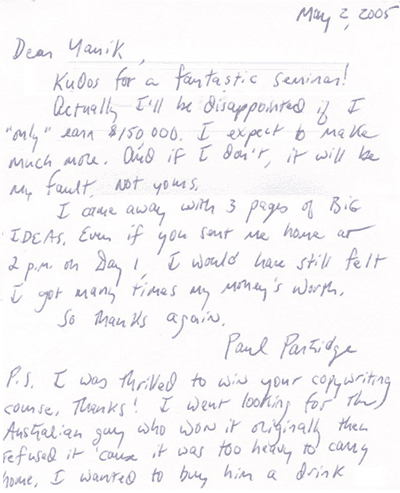 May 2, 2005
Dear Yanik,
Kudos for a fantastic seminar!
Actually I'll be disappointed if I
"only" earn $150,000. I expect to make
much more. And if I don't, it will be
my fault, not yours.
I came away with 3 pages of BIG
IDEAS. Even if you sent me home at
2 p.m. on Day 1, I would have still felt
I got many times my money's worth.
So thanks again.
Paul Partridge
P.S. I was thrilled to win your copywriting
course. Thanks! I went looking for the
Australian guy who won it originally then
refused it 'cause it was too heavy to carry
home. I wanted to buy him a drink